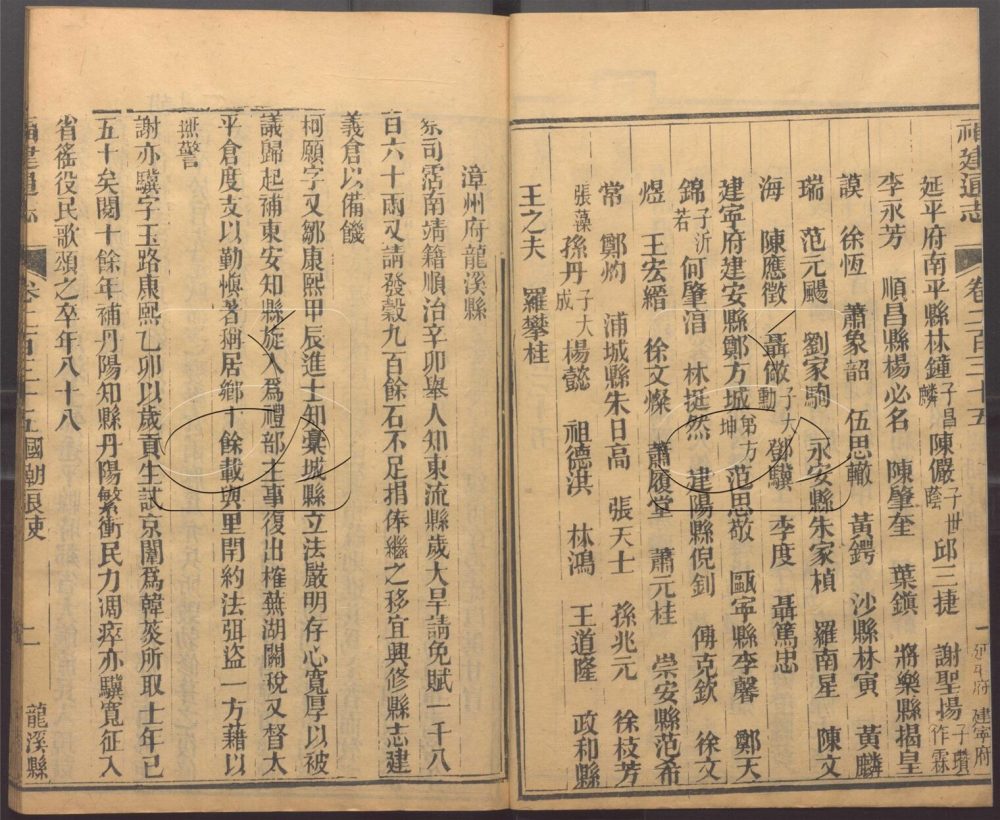 福建通志 卷二百三十五 一 延平府 建寧府
延平府南平縣林鐘子昌麟 陳儼子世蔭 邱三捷 謝聖揚子瓚作霖
李永芳 順昌縣楊必名 陳肇奎 葉鎮 將樂縣揭皇
謨 徐恆 蕭象韶 伍思轍 黃鍔 沙縣林寅 黃麟
瑞 范元颺 劉家駒 永安縣朱家楨 羅南星 陳文
海 陳應徵 聶儆子大勳 鄧驥 李度 聶篤忠
建寧府建安縣鄭方城弟方坤 范思敬 甌寧縣李馨 鄭天
錦子沂若 何肇淐 林挺然 建陽縣倪釗 傅克欽 徐文
煜 王宏縉 徐文燦 蕭履堂 蕭元桂 崇安縣范希
常 鄭灼 浦城縣朱日高 張天士 孫兆元 徐枝芳
張藻 孫丹子大成 楊懿 祖德淇 林鴻 王道隆 政和縣
王之夫 羅攀桂
漳州府龍溪縣
司霑南靖籍順治辛卯舉人知東流縣歲大旱請免賦一千八
百六十兩又請發穀九百餘石不足捐俸繼之移宜興修縣志建
義倉以備饑
柯願字又鄒康熙甲辰進士知藁城縣立法嚴明存心寬厚以被
議歸起補東安知縣旋入爲禮部主事復出榷蕪湖關稅又督太
平倉度支以勤慎著稱居鄉十餘載與里閈約法弭盜一方藉以
無警
謝亦驥字玉路康熙乙卯以歲貢生試京闈爲韓菼所取士年已
五十矣閱十餘年補丹陽知縣丹陽繁衝民力凋瘁亦驥寬征入
省徭役民歌頌之卒年八十八
福建通志 卷二百三十五 國朝良吏 二 龍溪縣